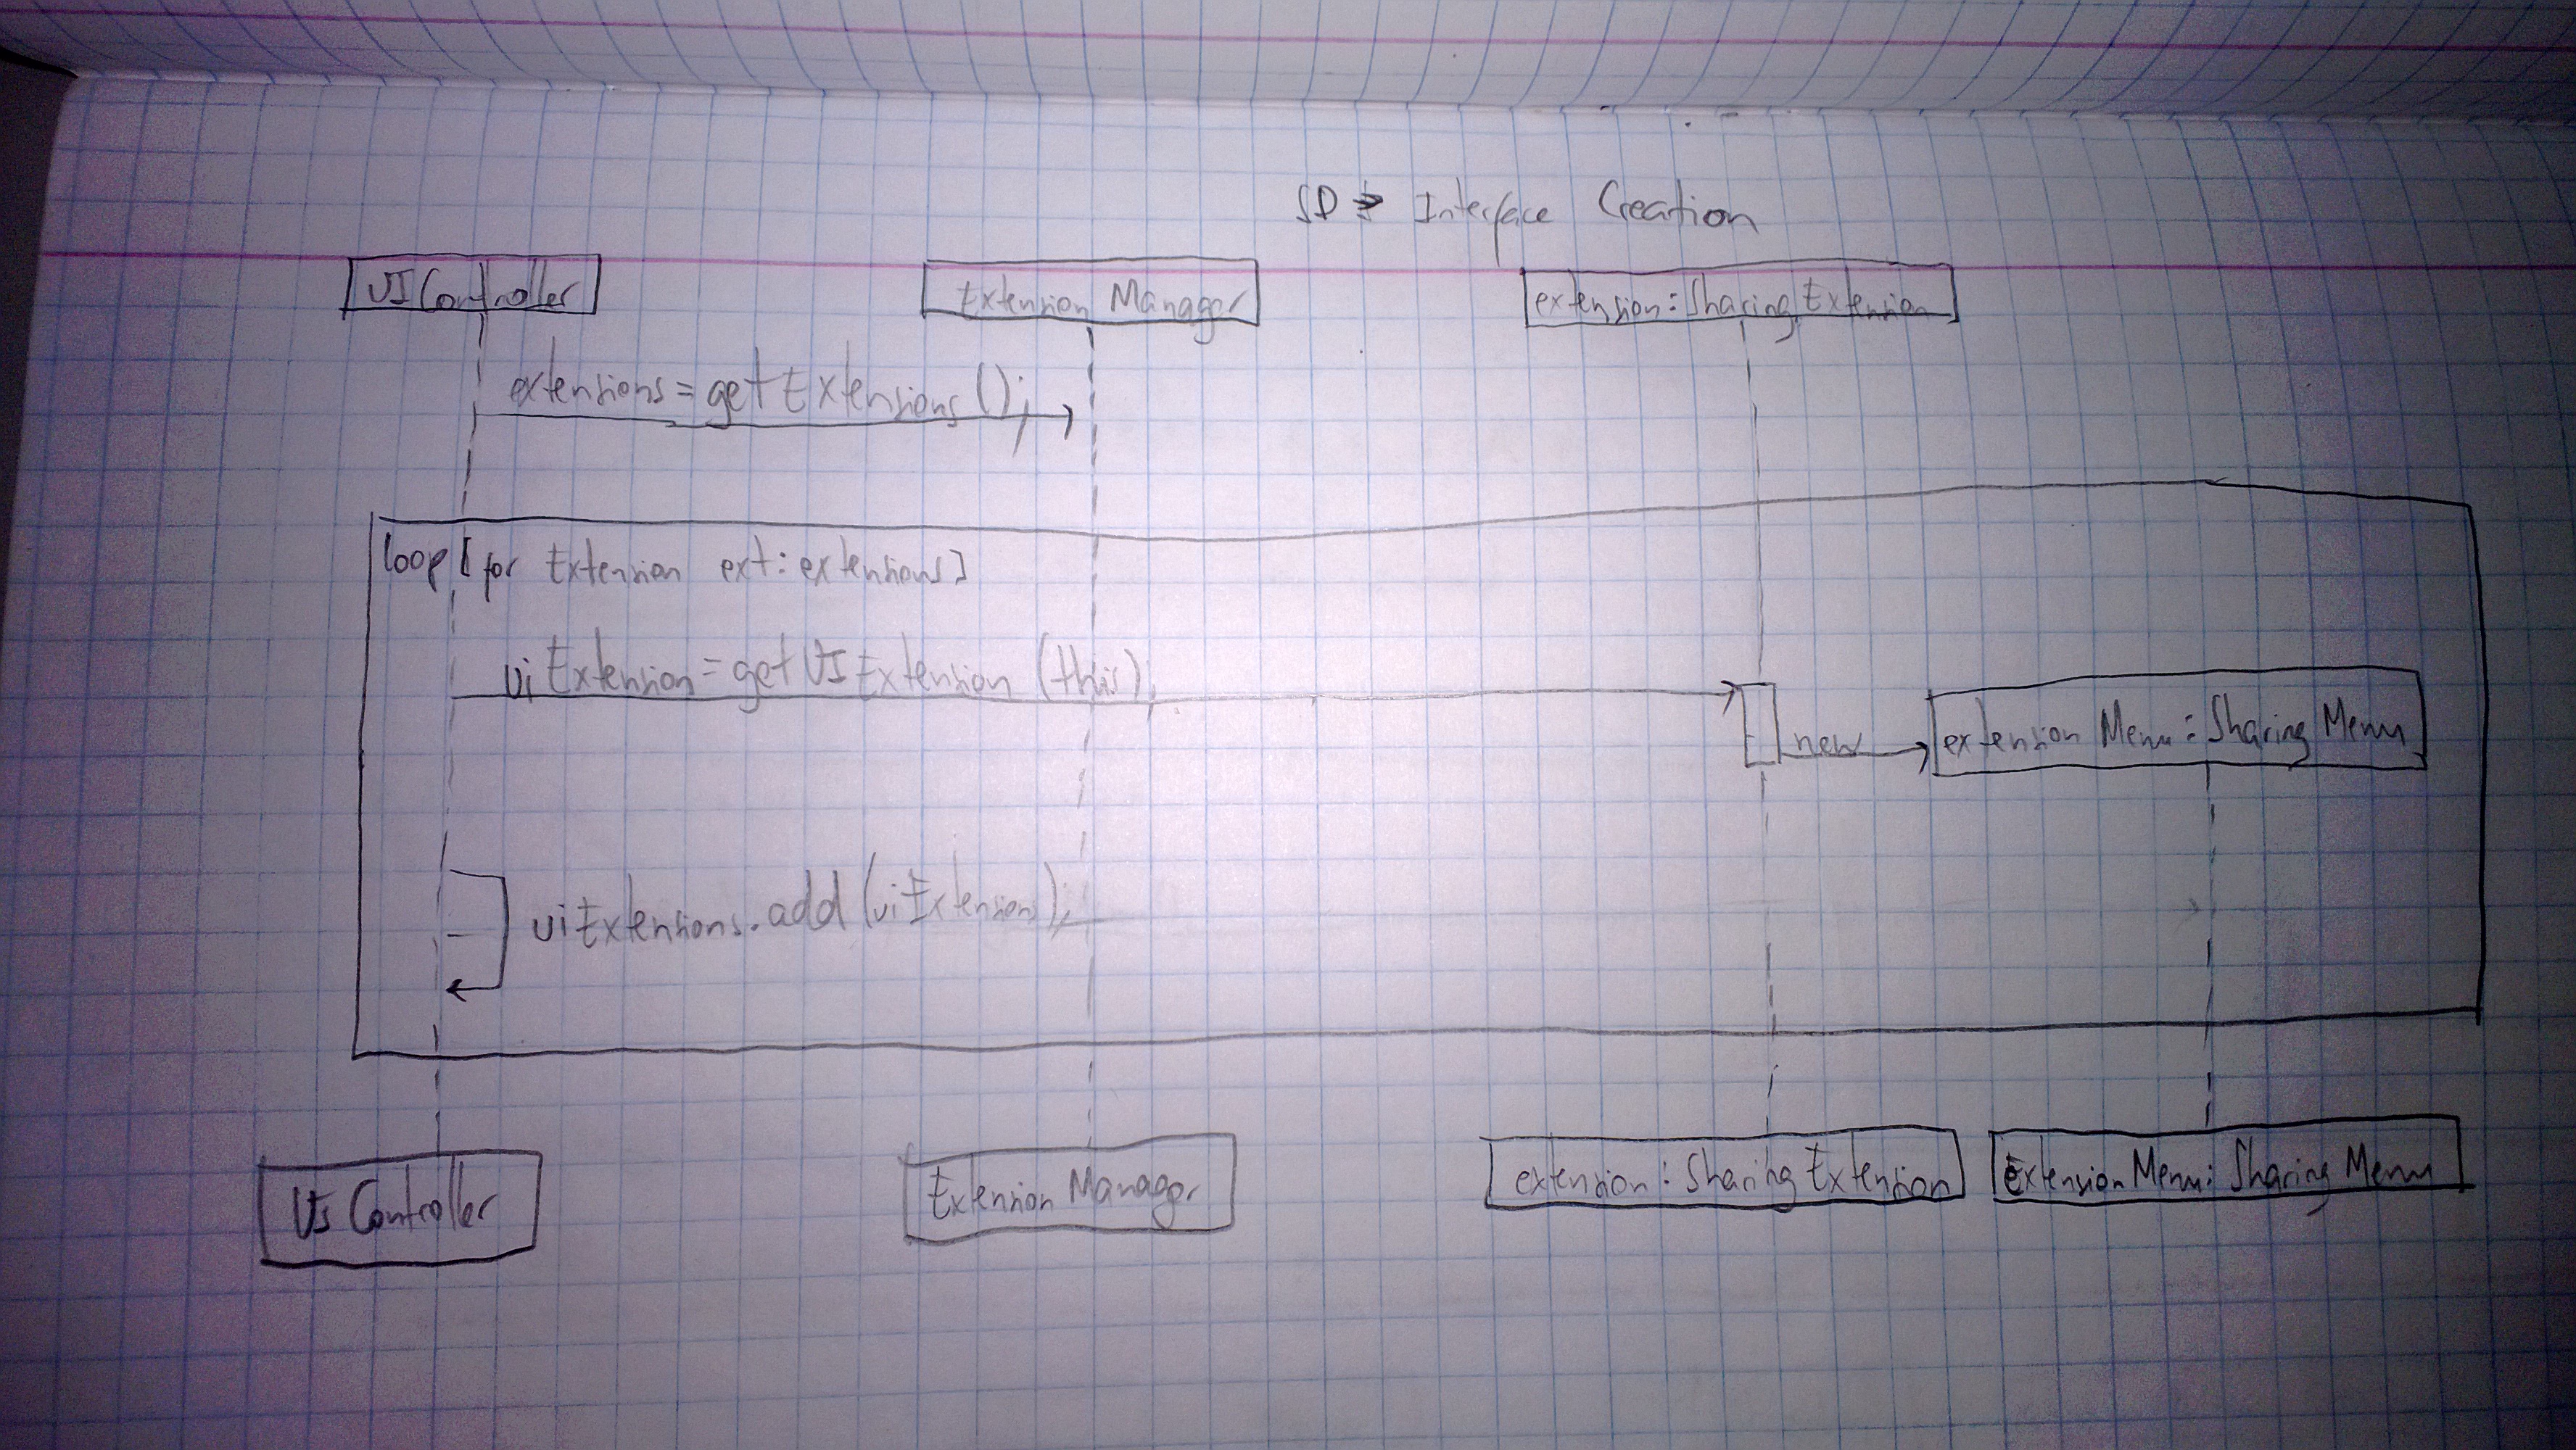 SD → Interface Creation
UIController
Extension Manager
extension:Sharing Extension
extensions=getExtensions();
loop [for Extension ext:extensions]
uiExtension=getUIExtension (this);
new
extension Menu:Sharing Menu
uiExtensions.add(uiExtension);
UI Controller
Extension Manager
extension:Sharing Extension
extension Menu:Sharing Menu